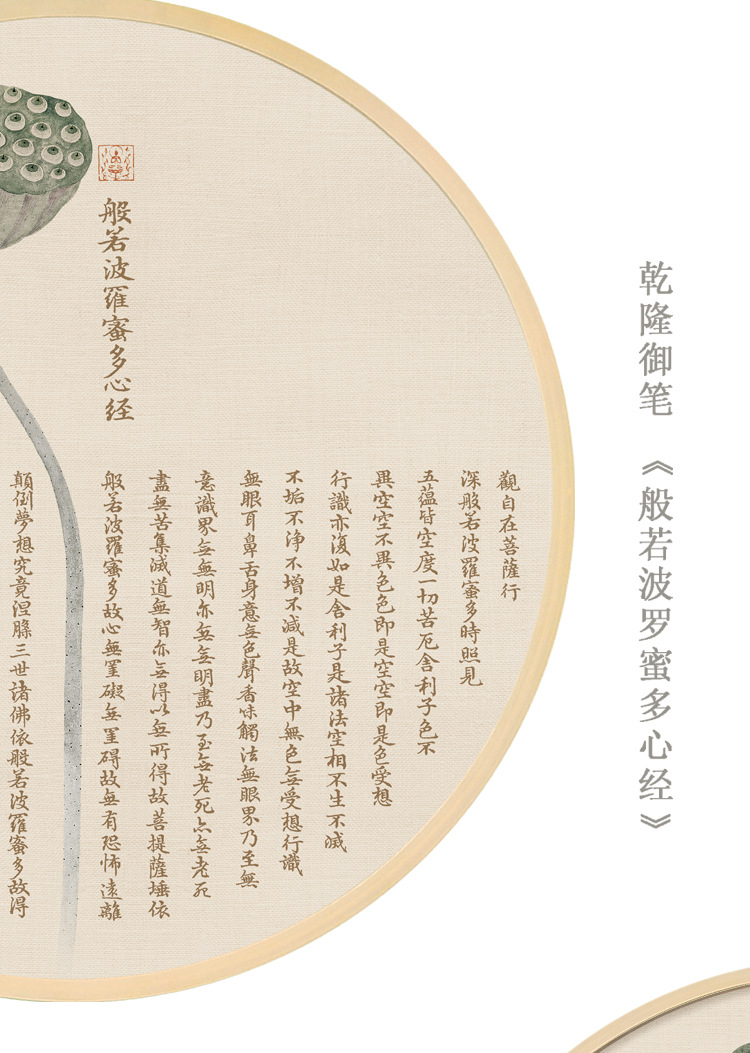 乾隆御笔 《般若波罗蜜多心经》
般若波羅蜜多心经
觀自在菩薩行
深般若波羅蜜多時照見
五蕴皆空度一切苦厄舍利子色不
異空空不異色色即是空空即是色受想
行識亦復如是舍利子是諸法空相不生不滅
不垢不净不增不減是故空中無色無受想行識
無眼耳鼻舌身意無色聲香味觸法無眼界乃至無
意識界無無明亦無無明盡乃至無老死亦無老死
盡無苦集滅道無智亦無得以無所得故菩提薩埵依
般若波羅蜜多故心無罣礙無罣碍故無有恐怖遠離
顛倒夢想究竟涅槃三世諸佛依般若波羅蜜多故得